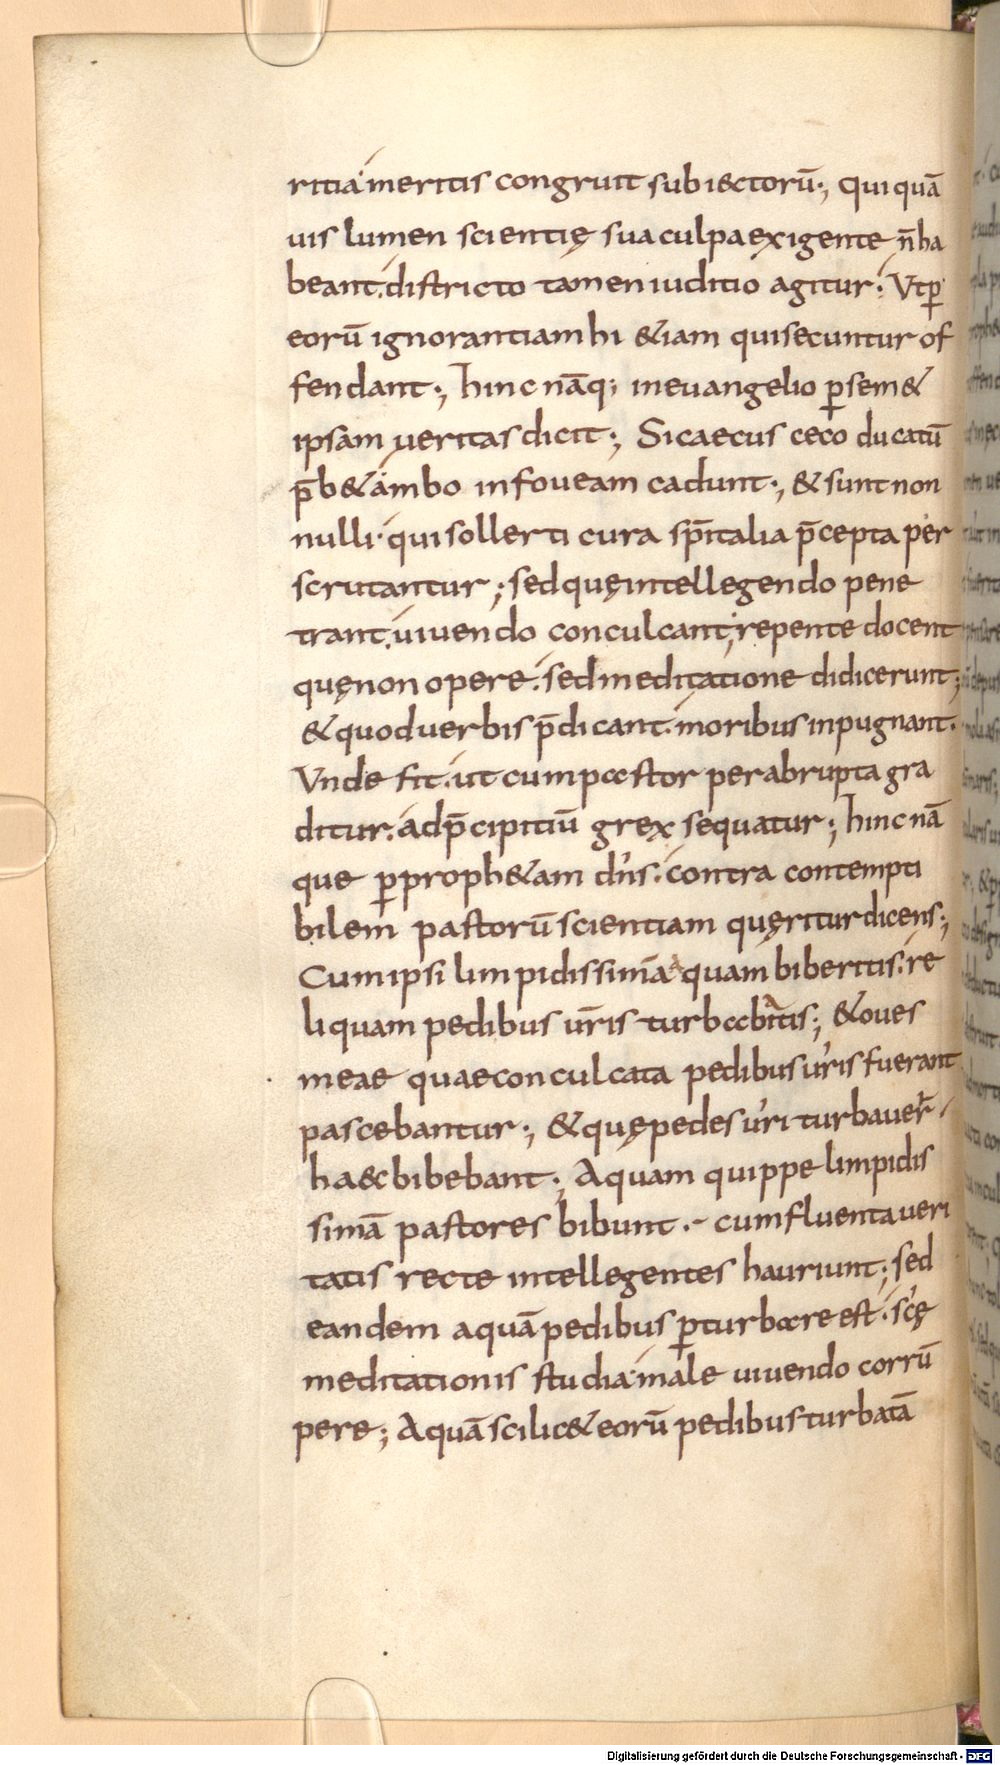 ritia meritis congruit subiectorū; qui quā
uis lumen scientię sua culpa exigente n̄ ha
beant. districto tamen iuditio agitur. Ut ꝑ
eorū ignorantiam hi &iam qui secuntur of
fendant; hinc nāq; in evangelio ꝑ sem&
ipsam veritas dicit; Si caecus ceco ducatū
p̄b& ambo in foveam cadunt; & sunt non
nulli qui sollerti cura sp̄italia p̄cepta per
scrutantur; sed quę intellegendo pene
trant. vivendo conculcant; repente docent
quę non opere. sed meditatione didicerunt;
& quod verbis p̄dicant. moribus inpugnant.
Unde fit. ut cum pastor per abrupta gra
ditur. ad p̄cipitiū grex sequatur; hinc nā
que ꝑ proph&am dn̄s. contra contempti
bilem pastorū scientiam quęritur dicens;
Cum ipsi limpidissimā aquam biberitis. re
liquam pedibus ur̄is turbabatis; & oves
meae quae conculcata pedibus ur̄is fuerant
pascebantur; & quę pedes ur̄i turbaver̄
haec bibebant; Aquam quippe limpidis
simā pastores bibunt. cum fluenta veri
tatis recte intellegentes hauriunt; sed
eandem aquā pedibus ꝑturbare est. sc̄ę
meditationis studia male vivendo corrū
pere; Aquā scilic& eorū pedibus turbatā
Digitalisierung gefördert durch die Deutsche Forschungsgemeinschaft - DFG